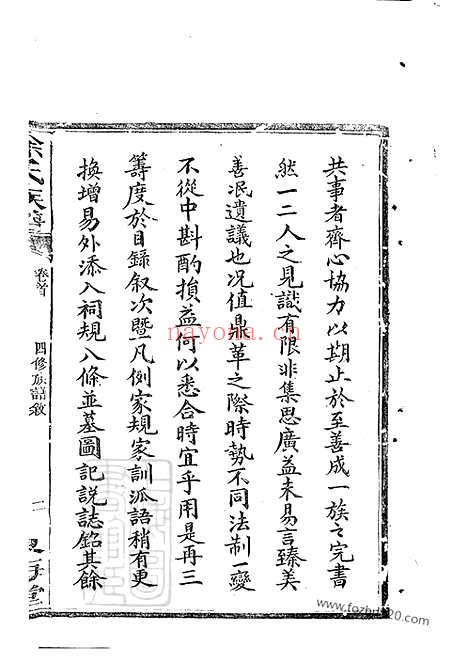 共事者齊心協力以期止於至善成一族之完書
然一二人之見識有限非集思廣益未易言臻美
善泯遺議也况值鼎革之際時勢不同法制一變
不從中斟酌損益何以悉合時宜乎用是再三
籌度於目錄叙次暨凡例家規家訓派語稍有更
換增易外添入祠規八條並墓圖記説誌銘其餘
氏族譜
卷首
四修族譜敘
二
nayona.cn
www.fozhu920.com